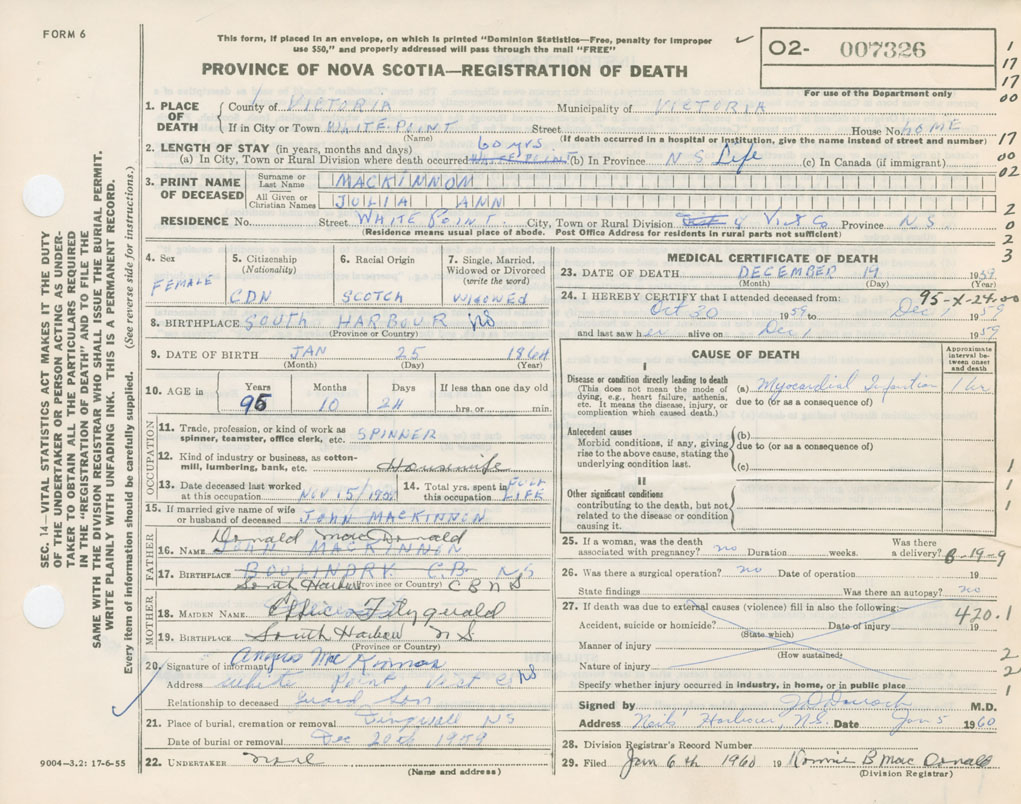 FORM 6
This form, if placed in an envelope, on which is printed "Dominion Statistics—Free, penalty for improper
use $50," and properly addressed will pass through the mail "FREE"
PROVINCE OF NOVA SCOTIA—REGISTRATION OF DEATH
02- 007326
For use of the Department only
1
17
17
00
17
00
02
2
0
2
3
SEC. 14—VITAL STATISTICS ACT MAKES IT THE DUTY
OF THE UNDERTAKER OR PERSON ACTING AS UNDER-
TAKER TO OBTAIN ALL THE PARTICULARS REQUIRED
IN THE "REGISTRATION OF DEATH" AND TO FILE THE
SAME WITH THE DIVISION REGISTRAR WHO SHALL ISSUE THE BURIAL PERMIT.
WRITE PLAINLY WITH UNFADING INK. THIS IS A PERMANENT RECORD.
Every item of information should be carefully supplied. (See reverse side for instructions.)
1. PLACE OF DEATH
County of VICTORIA Municipality of VICTORIA
If in City or Town WHITE POINT Street House No. HOME
(Name) (If death occurred in a hospital or institution, give the name instead of street and number)
2. LENGTH OF STAY (in years, months and days) 60 yrs.
(a) In City, Town or Rural Division where death occurred WHITE POINT (b) In Province N S Life (c) In Canada (if immigrant)
3. PRINT NAME OF DECEASED
Surname or Last Name MACKINNON
All Given or Christian Names JULIA ANN
RESIDENCE No. Street WHITE POINT City, Town or Rural Division Vict Co Province N S.
(Residence means usual place of abode. Post Office Address for residents in rural parts not sufficient)
4. Sex FEMALE
5. Citizenship (Nationality) CDN
6. Racial Origin SCOTCH
7. Single, Married, Widowed or Divorced (write the word) WIDOWED
8. BIRTHPLACE SOUTH HARBOUR NS
(Province or Country)
9. DATE OF BIRTH JAN 25 1864
(Month) (Day) (Year)
10. AGE in Years Months Days If less than one day old
95 10 24 hrs. or min.
OCCUPATION
11. Trade, profession, or kind of work as spinner, teamster, office clerk, etc. SPINNER
12. Kind of industry or business, as cotton-mill, lumbering, bank, etc. Housewife
13. Date deceased last worked at this occupation NOV 15/1959
14. Total yrs. spent in this occupation FULL LIFE
15. If married give name of wife or husband of deceased JOHN MACKINNON
FATHER
Donald MacDonald
16. NAME JOHN MACKINNON
17. BIRTHPLACE C.B. NS
South Harbour (Province or Country) C B N S
MOTHER
18. MAIDEN NAME Fitzgerald
19. BIRTHPLACE South Harbour N S
(Province or Country)
20. Signature of informant Angus MacKinnon
Address White Point Vict Co NS
Relationship to deceased Grand Son
21. Place of burial, cremation or removal Dingwall NS
Date of burial or removal Dec 20th 1959
22. UNDERTAKER none
(Name and address)
9004—3.2: 17-6-55
MEDICAL CERTIFICATE OF DEATH
23. DATE OF DEATH DECEMBER 19 1959
(Month) (Day) (Year)
95-X-24-00
24. I HEREBY CERTIFY that I attended deceased from:
Oct 30 1959 to Dec 1 1959
and last saw her alive on Dec 1 1959
CAUSE OF DEATH
Approximate interval between onset and death
I
Disease or condition directly leading to death
(This does not mean the mode of dying, e.g., heart failure, asthenia, etc. It means the disease, injury, or complication which caused death.)
(a) Myocardial Infarction 1 hr
due to (or as a consequence of)
Antecedent causes
Morbid conditions, if any, giving rise to the above cause, stating the underlying condition last.
(b)
due to (or as a consequence of)
(c)
II
Other significant conditions
contributing to the death, but not related to the disease or condition causing it.
1
1
1
25. If a woman, was the death associated with pregnancy? no Duration weeks. Was there a delivery?
8-19-9
26. Was there a surgical operation? no Date of operation 19
State findings Was there an autopsy? no
27. If death was due to external causes (violence) fill in also the following:
420.1
Accident, suicide or homicide? Date of injury 19
(State which)
Manner of injury
(How sustained)
Nature of injury
2
2
Specify whether injury occurred in industry, in home, or in public place
1
Signed by M.D.
Address Neils Harbour, N.S. Date Jan 5 1960
28. Division Registrar's Record Number
29. Filed Jan 6th 1960 19 Konnie B MacDonald
(Division Registrar)